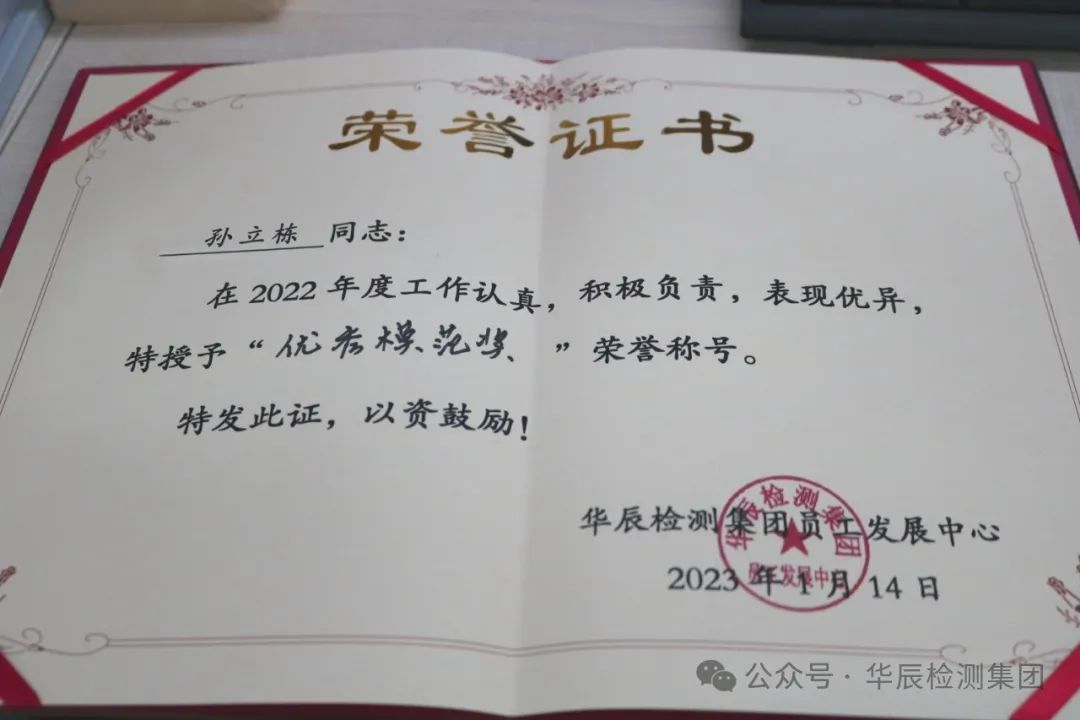 荣誉证书
孙立栋 同志：
在2022年度工作认真，积极负责，表现优异，
特授予“优秀模范奖”荣誉称号。
特发此证，以资鼓励！
华辰检测集团员工发展中心
2023年1月14日
华辰检测集团
员工发展中心
公众号·华辰检测集团